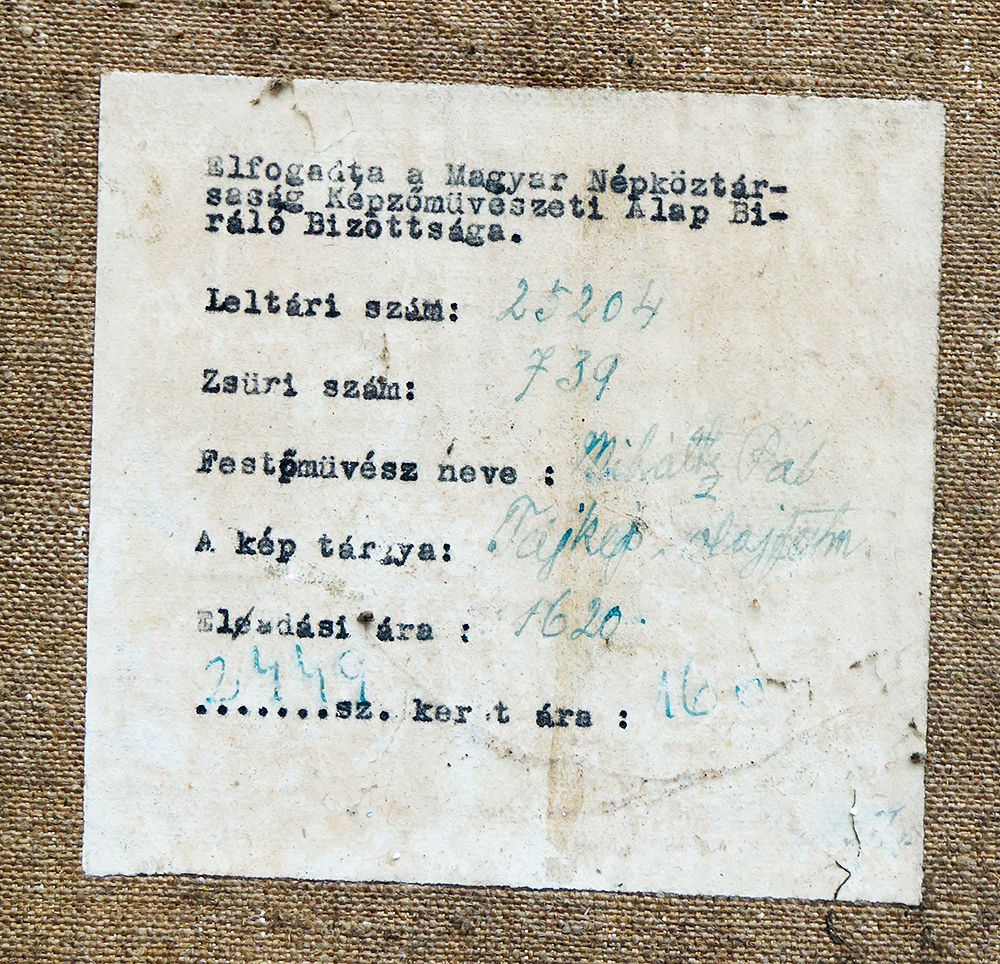 Elfogadta a Magyar Népköztár-
saság Képzőművészeti Alap Bi-
ráló Bizottsága.
Leltári szám: 25204
Zsüri szám: 739
Festőmüvész neve : Miháltz Pál
A kép tárgya: Tájkép. olajfestm.
Eladási ára : 1620.
2449
.......sz. keret ára : 160